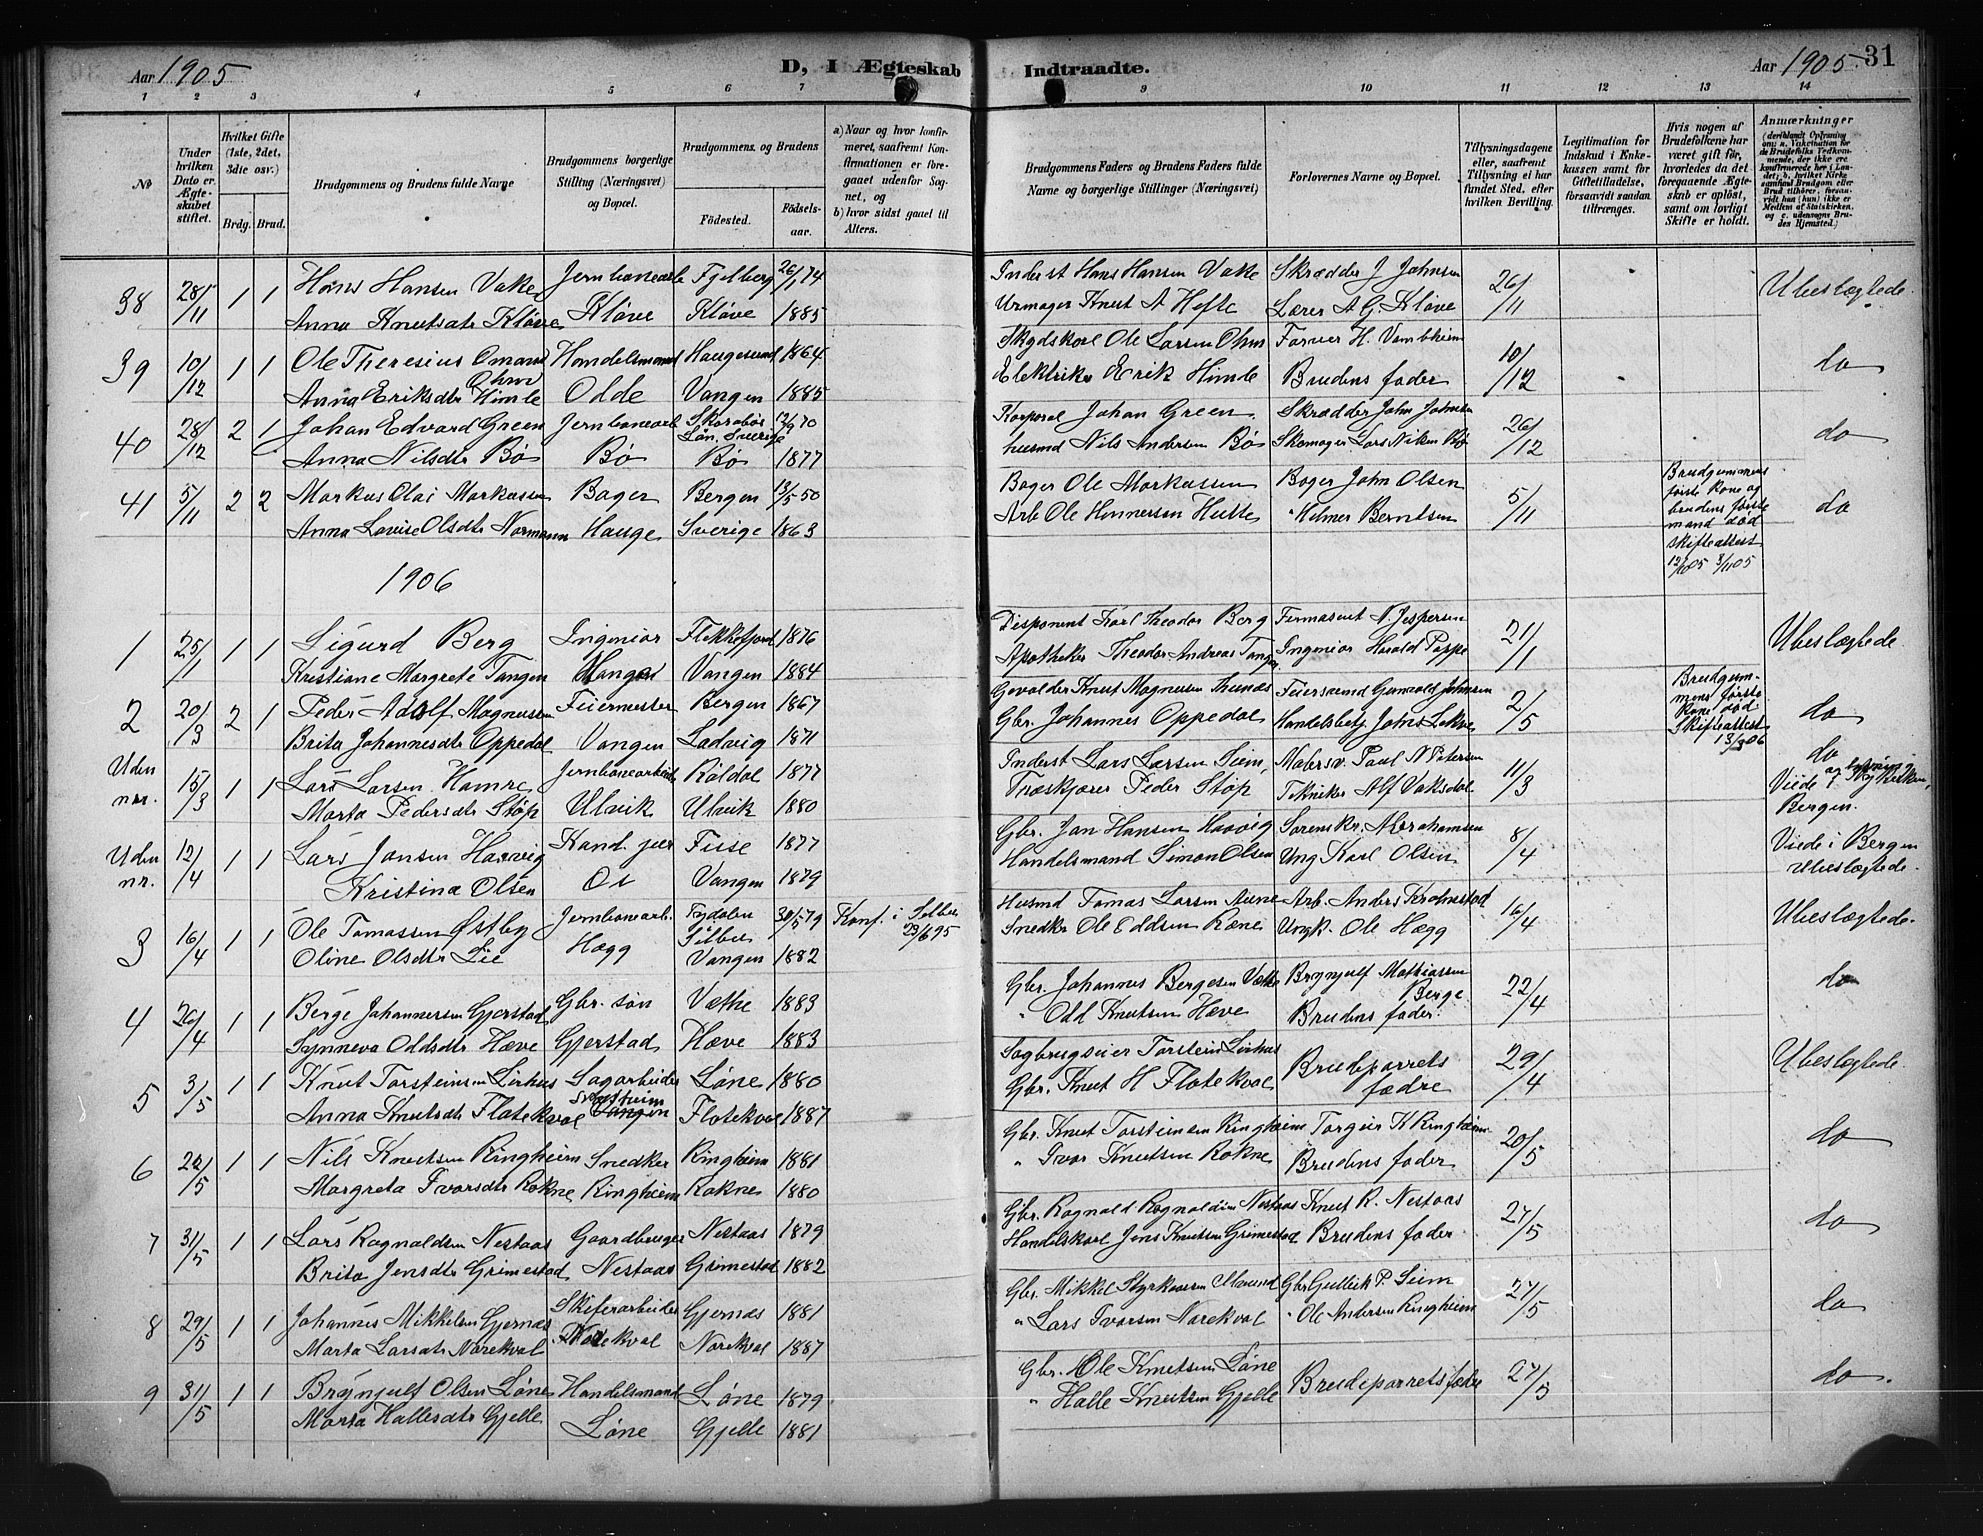 Aar 1905
D, I Ægteskab Indtraadte.
Aar 1905.
31
1 2 3 4 5 6 7 9 10 11 12 13 14
No
Under hvilken Dato er Ægteskabet stiftet.
Hvilket Gifte (1ste, 2det, 3die osv.)
Brdg. Brud.
Brudgommens og Brudens fulde Navne
Brudgommens borgerlige Stilling (Næringsvei) og Bopæl.
Brudgommens. og Brudens
Fødested.
Fødselsaar.
a) Naar og hvor konfirmeret, saafremt Konfirmationen er foregaaet udenfor Sognet, og
b) hvor sidst gaaet til Alters.
Brudgommens Faders og Brudens Faders fulde Navne og borgerlige Stillinger (Næringsvei)
Forlovernes Navne og Bopæl.
Tillysningsdagene eller, saafremt Tillysning ei har fundet Sted, efter hvilken Bevilling.
Legitimation for Indskud i Enkekassen samt for Giftetilladelse, forsaavidt saadan tiltrænges.
Hvis nogen af Brudefolkene har været gift før, hvorledes da det foregaaende Ægteskab er opløst, samt om lovligt Skifte er holdt.
Anmærkninger
(deriblandt Optegning om: a. Vakcination for de Brudefolks Vedkommende, der ikke ere konfirmerede her i Landet; b. hvilket Kirkesamfund Brudgom eller Brud tilhører, forsaavidt han (hun) ikke er Medlem af Statskirken, og c. udensogns Brudes Hjemsted.)
38 28/11 1 1 Hans Hansen Vake Jernbanearb Fjelberg 26/1 74 Inderst Hans Hansen Vake Skrædder J Johnsen 26/11 Ubeslægtede.
Anna Knutsdtr Kløve Kløve Kløve 1885 Urmager Knut A Hefte Lærer A. G. Kløve
39 10/12 1 1 Ole Theresius Omann Handelsmand Haugesund 1864 Skydskarl Ole Larsen Ohm Farver H. Vambheim 10/12 do
Ohm
Anna Eriksdtr Himle Odde Vangen 1885 Elektriker Erik Himle Brudens fader
40 28/12 2 1 Johan Edvard Green Jernbanearb Skarabor Län, Sverige 12/9 70 Korporal Johan Green Skrædder John Johnsen 26/12 do
Anna Nilsdtr Bø Bø Bø 1877 husmd Nils Andersen Bø Skomager Lars Nilsen Bø
41 5/11 2 2 Markus Olai Markussen Bager Bergen 13/5 50 Bager Ole Markussen Bager John Olsen 5/11 Brudgommens første kone og brudens første mand død skifteattest 12/10 05 3/11 05 do
Anna Lovise Olsdtr Normann Hauge Sverige 1863 Arb Ole Hennersen Hutte " Helmer Berntsen
1906
1 25/1 1 1 Sigurd Berg Ingeniør Flekkefjord 1876 Disponent Karl Theodor Berg Firmascut N. Jespersen 21/1 Ubeslægtede
Kristiane Margrete Tangen Vangen Vangen 1884 Apotheker Theodor Andreas Tangen Ingeniør Harald Poppe
2 20/3 2 1 Peder Adolf Magnussen Feiermester Bergen 1867 Knut Magnussen Feiersvend Gunvald Johnsen 2/5 Brudgommens første kone død Skifteattest 13/3 06 do
Brita Johannesdtr Oppedal Vangen Ladvig 1871 Gbr. Johannes Oppedal Handelsbetj Johs Lekve
Uden nr. 15/3 1 1 Lars Larsen Hamre Jernbanearbeid Røldal 1877 Inderst Lars Larsen Seim, Malersv. Paul N Petersen 11/3 do
Viede i Nykirken, Bergen.
Marta Pedersdtr Støp Ulvik Ulvik 1880 Træskjærer Peder Støp Tekniker Alf Vaksdal
Uden nr. 12/4 1 1 Lars Jansen Haavig Kand. jur Fuse 1877 Gbr. Jan Hansen Haavig Sorenskr. Abrahamsen 8/4 Viede i Bergen Ubeslægtede.
Kristina Olsen Os Vangen 1879 Handelsmand Simon Olsen Ung Karl Olsen
3 16/4 1 1 Ole Tomassen Østby Jernbanearb. Tydalen Selbu 30/5 79 Konf. i Selbu 23/6 95 Husmd Tomas Larsen Aune Arb. Anders Krohnstad 16/4 Ubeslægtede.
Oline Olsdtr Lie Hægg Vangen 1882 Snedker Ole Eddsen Ræne Ungk. Ole Hægg
4 26/4 1 1 Berge Johannessen Gjerstad Gbr. søn Væthe 1883 Gbr. Johannes Bergesen Væthe Brynjulf Mathiassen Berge 22/4 do
Synneva Oddsdtr Hæve Gjerstad Hæve 1883 " Odd Knutsen Hæve Brudens fader.
5 3/5 1 1 Knut Torsteinsen Lirhus Sagarbeider Løne 1880 Sagbrugseier Torstein Lirhus Brudeparrets fædre 29/4 Ubeslægtede.
Anna Knutsdtr Flatekval Vangen Flatekval 1887 Gbr. Knut H Flatekval
6 22/5 1 1 Nils Knutsen Ringheim Snedker Ringheim 1881 Gbr. Knut Torsteinsen Ringheim Torgeir K Ringheim 20/5 do
Margreta Ivarsdtr Rokne Ringheim Rokne 1880 " Ivar Knutsen Rokne Brudens fader
7 31/5 1 1 Lars Ragnaldsen Nestaas Gaardbruger Nestaas 1879 Gbr. Ragnald Ragnaldsen Nestaas Knut R. Nestaas 27/5 do
Brita Jensdtr Grimestad Nestaas Grimestad 1882 Handelskarl Jens Knutsen Grimestad Brudens fader.
8 29/5 1 1 Johannes Mikkelsen Gjernæs Skiferarbeider Gjernæs 1881 Gbr. Mikkel Styrkaarsen Gbr Gullick P. Seim 27/5 do
Marta Larsdtr Norekval Norekval Norekval 1887 " Lars Ivarsen Norekval " Ole Andersen Ringheim
9 31/5 1 1 Brynjulf Olsen Løne Handelsmand Løne 1879 Gbr. Ole Knutsen Løne Brudeparrets fædre 27/5 do.
Marta Hallesdtr Gjelle Løne Gjelle 1881 " Halle Knutsen Gjelle